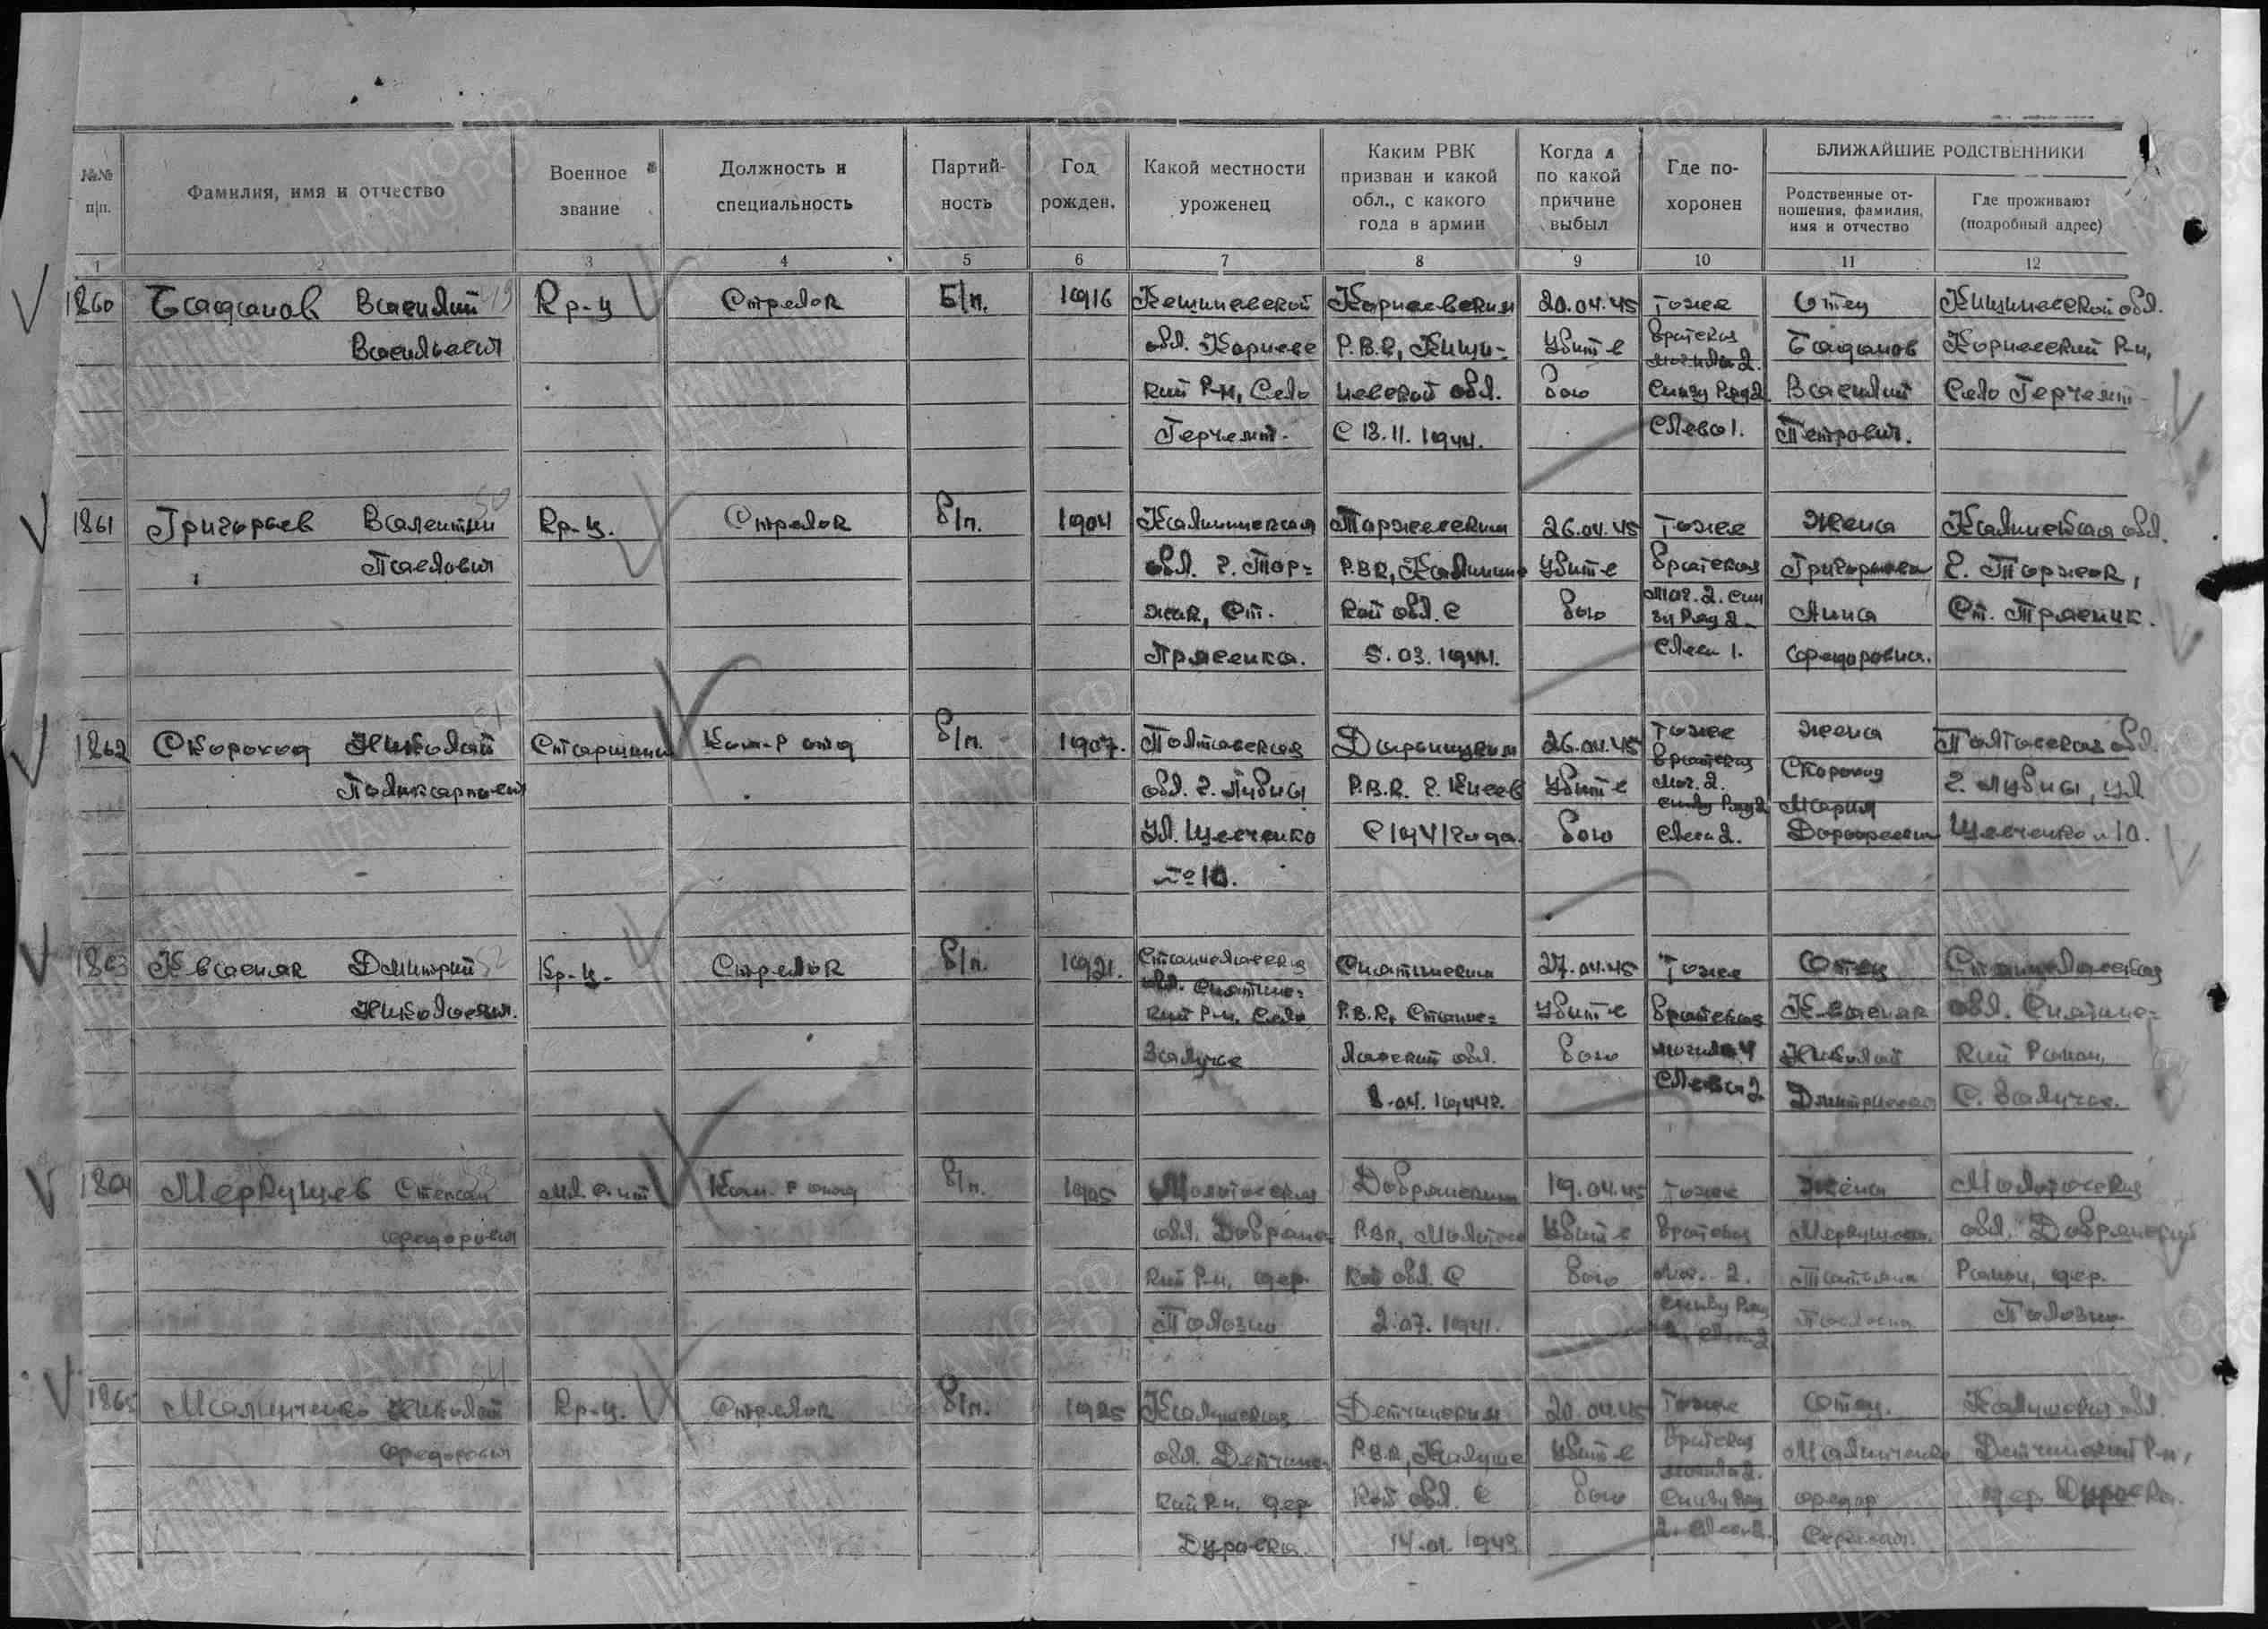 №№ п|п.
Фамилия, имя и отчество
Военное звание
Должность и специальность
Партий-ность
Год рожден.
Какой местности уроженец
Каким РВК призван и какой обл., с какого года в армии
Когда и по какой причине выбыл
Где по-хоронен
БЛИЖАЙШИЕ РОДСТВЕННИКИ
Родственные от-ношения, фамилия, имя и отчество
Где проживают (подробный адрес)
1 2 3 4 5 6 7 8 9 10 11 12
1860 Василий Кр-ц Стрелок Б/п. 1916 Кешиневской Корнеевским 20.04.45 Тоже Отец Кишиневской обл.
Васильевич обл. Корневс Р.В.К, Киши- Убит в братская Корневский Р-н,
кий Р-н, Село невской обл. бою снизу Ряд 2 Василий Село Герчешт-
Герчешт- С 13.11.1944. слева 1. Петрович.
1861 Григорьев Валентин Кр-ц. Стрелок б/п. 1904 Калининская Торжокским 26.04.45 Тоже жена обл.
Павлович обл. г. Тор- Р.В.К, Калининс Убит в братская Григорьева г. Торжок,
жок, Ст. кой обл. С бою мог. 2. сни Анна Ст.
5.03.1941. слева 1. Федоровна.
1862 Скороход Николай Старшина Ком-р отд б/п. 1907. Полтавская Дарницким 26.04.45 Тоже жена Полтавская обл.
Поликарпович обл. г. Лубны Р.В.К. г. Киев Убит в братская мог. 2. Скороход г. Лубны, ул
Ул. Шевченко С 1941 года. бою снизу Ряд 2 слева 2. Мария Шевченко № 10.
№ 10.
1863 Квасняк Дмитрий Кр-ц. Стрелок б/п. 1921. Станиславская Снятинским 27.04.45 Тоже Отец Станиславская
Николаевич. обл. Снятинс- кий Р-н, Село Р.В.К, Станис- Убит в братская Квасняк обл. Снятинс-
Залучье лавский обл. бою могила 4 Николай кий Район,
8.04.1944г. слева 2. Дмитриевич С. Залучье.
1864 Меркушев Степан мл. с-нт Ком-р отд б/п. 1905 Молотовская Добрянским 19.04.45 Тоже жена Молотовская
Федорович обл. Добрянс- РВК, Молотовс Убит в братская Меркушева обл. Добрянский
кий Р-н, дер. кой обл. С бою мог. 2. Татьяна Район, дер.
Полозно 2.07.1941. снизу Ряд Полозно
1865 Николай Кр-ц. Стрелок б/п. 1925 Калужская Детчинским 20.04.45 Тоже Отец. Калужская обл.
Федорович обл. Детчинс- Р.В.К, Калужс Убит в братская Детчинский Р-н,
кий Р-н, дер кой обл. С бою могила 2. снизу Ряд Федор дер.
2. слева 2. Сергеевич.